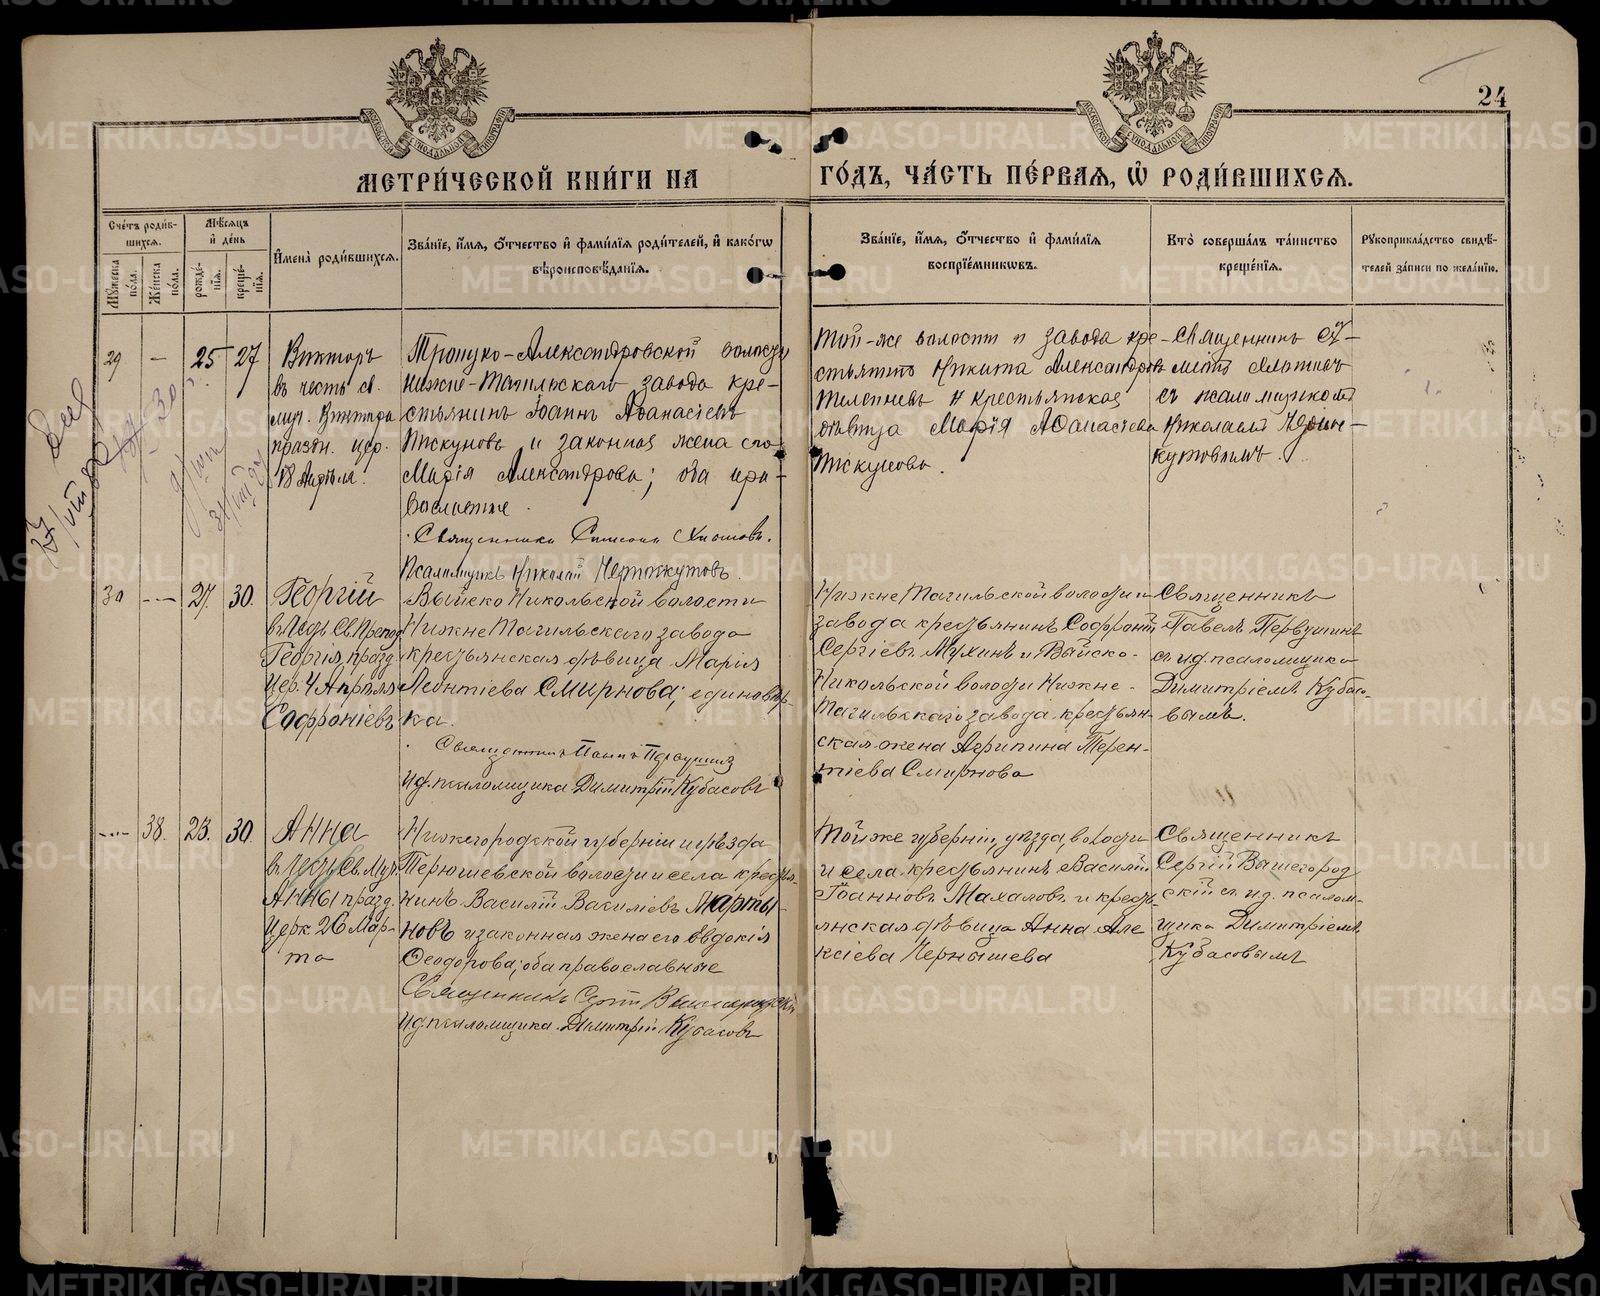 24
МЕТРИ́ЧЕСКОЙ КНИ́ГИ НА ГО́ДЪ, ЧА́СТЬ ПЕ́РВАЯ, Ѡ РОДИ́ВШИХСЯ.
Сче́тъ роди́в-
шихся.
Му́жеска по́ла.
Же́нска по́ла.
Мѣ́сяцъ и де́нь
рожде́-
нія.
креще́-
нія.
Имена̀ роди́вшихся.
Зва́ніе, и́мя, о́тчество и фами́лія роди́телей, и како́гѡ
вѣроисповѣ́данія.
Зва́ніе, и́мя, о́тчество и фами́лія
воспріе́мниковъ.
Кто̀ соверша́лъ та́инство
креще́нія.
Рукоприкла́дство свидѣ́-
телей за́писи по жела́нію.
29 — 25 27
Викторъ
въ честь св.
муч. Виктора
праздн. цер.
18 Апрѣля.
Троицко-Александровской волости
Нижне-Тагильскаго завода кре-
стьянинъ Іоаннъ Аѳанасіевъ
Пискуновъ и законная жена его
Марія Александрова; оба пра-
вославные.
Священникъ Симеонъ
Псаломщикъ Николай
Той-же волости и завода кре-
стьянинъ Никита Александровъ
и крестьянская
дѣвица Марія Аѳанасіева
Пискунова.
Священникъ
съ псаломщикомъ
Николаемъ
30 --- 27. 30.
Георгій
въ честь Св. Препод.
Георгія, празд.
Цер. 4 Апрѣля
Софроніевъ
Выйско Никольской волости
Нижне Тагильскаго завода
крестьянская дѣвица Марія
Леонтіева Смирнова; единовѣр-
ка.
Священникъ Павелъ Первушинъ
И.д. псаломщика Димитрій Кубасовъ
Нижне Тагильской волости и
завода крестьянинъ Софроній
Сергіевъ Мухинъ и Выйско-
Никольской волости Нижне-
Тагильскаго завода крестьян-
ская жена Агрипина Терен-
тіева Смирнова
Священникъ
Павелъ Первушинъ
съ и.д. псаломщика
Димитріемъ Кубасо-
вымъ.
--- 38. 23. 30
Анна
въ честь Св. Муч.
Анны празд.
Церк. 26 Мар-
та
Нижегородской губерніи и уѣзда
Терюшевской волости и села кресть-
нинъ Василій Василіевъ Марты-
новъ и законная жена его Евдокія
Ѳеодорова; оба православные
Священникъ Сергій Вышегородскій
И.д. псаломщика Димитрій Кубасовъ
Той же губерніи, уѣзда, волости
и села крестьянинъ Василій
Іоанновъ Махаловъ и кресть-
янская дѣвица Анна Але
ксіева Чернышева
Священникъ
Сергій Вышегород
скій съ и.д. псалом-
щика Димитріемъ
Кубасовымъ
METRIKI.GASO-URAL.RU